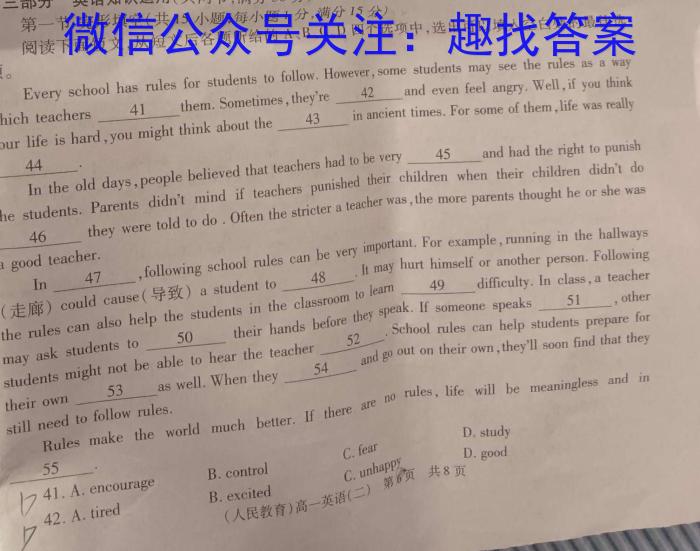 三部分
微信公众号关注：趣找答案
Every school has rules for students to follow. However, some students may see the rules as a way
hich teachers 41 them. Sometimes, they're 42 and even feel angry. Well, if you think
our life is hard, you might think about the 43 in ancient times. For some of them, life was really
44 .
In the old days, people believed that teachers had to be very 45 and had the right to punish
he students. Parents didn't mind if teachers punished their children when their children didn't do
46 they were told to do. Often the stricter a teacher was, the more parents thought he or she was
a good teacher.
In 47 , following school rules can be very important. For example, running in the hallways
(走廊) could cause(导致) a student to 48 . It may hurt himself or another person. Following
the rules can also help the students in the classroom to learn 49 difficulty. In class, a teacher
may ask students to 50 their hands before they speak. If someone speaks 51 , other
students might not be able to hear the teacher 52 . School rules can help students prepare for
their own 53 as well. When they 54 and go out on their own, they'll soon find that they
still need to follow rules.
Rules make the world much better. If there are no rules, life will be meaningless and in
55 .
41. A. encourage B. control C. fear D. study
42. A. tired B. excited C. unhappy D. good
(人民教育)高一英语(二) 第6页 共8页